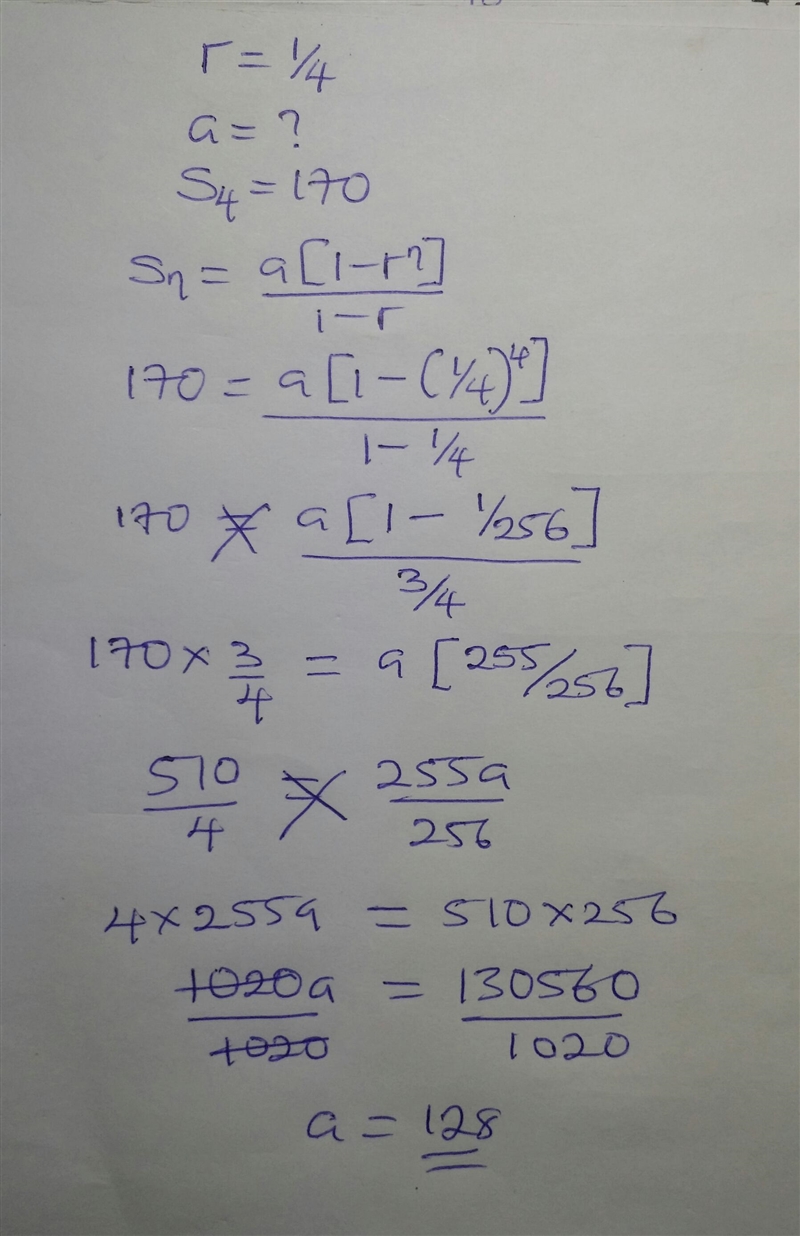 r = 1/4
a = ?
S₄ = 170
Sₙ = a[1-rⁿ] / 1-r
170 = a[1-(1/4)⁴] / 1-1/4
170 = a[1-1/256] / 3/4
170 × 3/4 = a[255/256]
510/4 = 255a/256
4×255a = 510×256
1020a/1020 = 130560/1020
a = 128